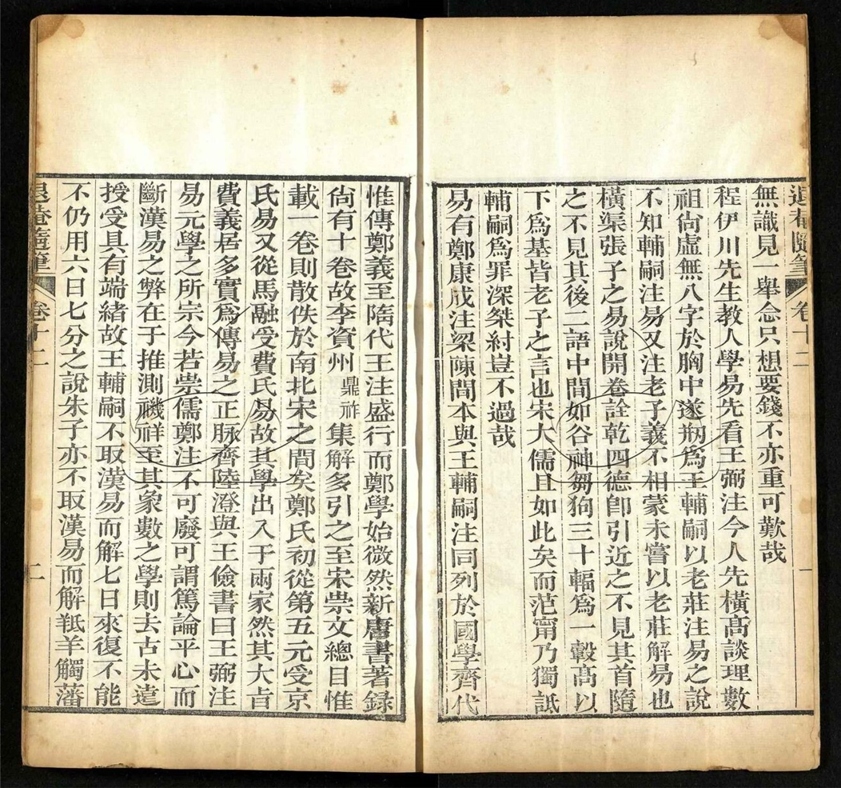 退菴隨筆 卷十二 一
無識見一舉念只想要錢不亦重可歎哉
程伊川先生教人學易先看王弼注今人先橫高談理數
祖尙虛無八字於胸中遂剏爲王輔嗣以老莊注易之說
不知輔嗣注易又注老子義不相蒙未嘗以老莊解易也
橫渠張子之易說開卷詮乾四德卽引迎之不見其首隨
之不見其後二語中間如谷神芻狗三十輻爲一轂高以
下爲基皆老子之言也宋大儒且如此矣而范甯乃獨詆
輔嗣爲罪深桀紂豈不過哉
易有鄭康成注梁陳間本與王輔嗣注同列於國學齊代
惟傳鄭義至隋代王注盛行而鄭學始微然新唐書著錄
尙有十卷故李資州鼎祚集解多引之至宋崇文總目惟
載一卷則散佚於南北宋之間矣鄭氏初從第五元受京
氏易又從馬融受費氏易故其學出入于兩家然其大㫖
費義居多實爲傳易之正脉齊陸澄與王儉書曰王弼注
易元學之所宗今若崇儒鄭注不可廢可謂篤論平心而
斷漢易之弊在于推測禨祥至其象數之學則去古未遠
授受具有端緒故王輔嗣不取漢易而解七日來復不能
不仍用六日七分之說朱子亦不取漢易而解羝羊觸藩
退菴隨筆 卷十二 二